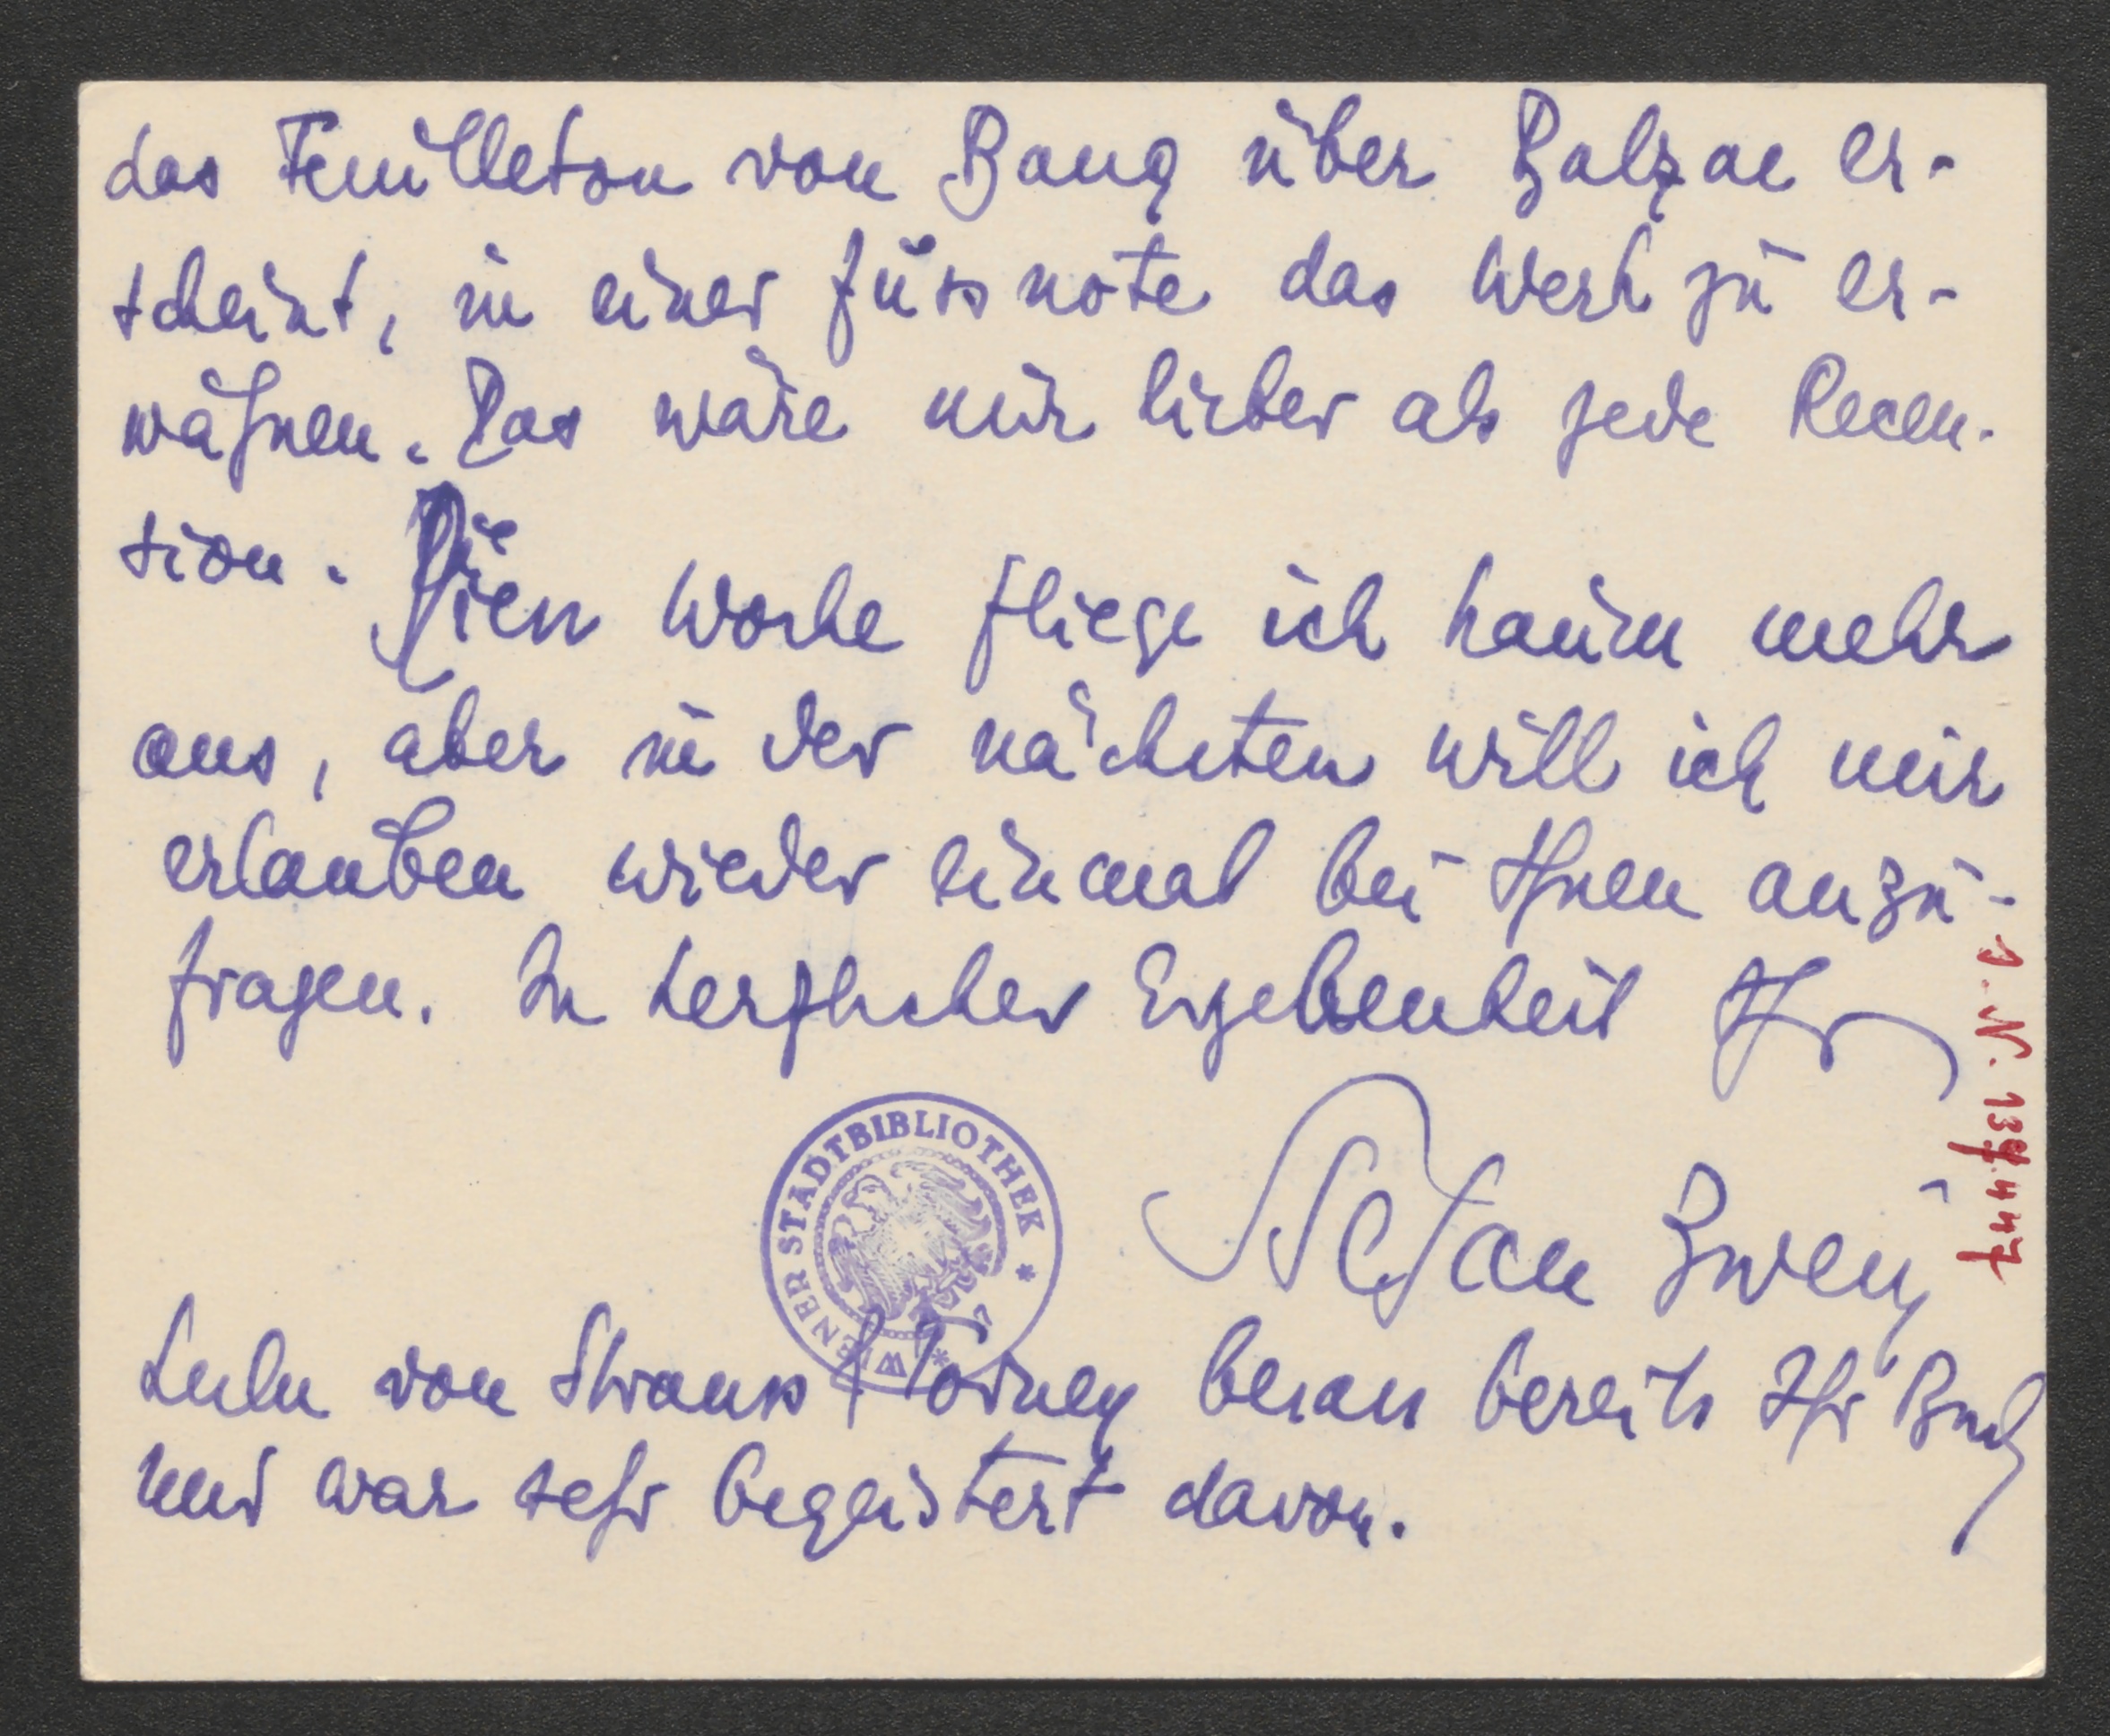 das Feuilleton von Bang über Balzac er-
scheint, in einer Fussnote das Werk zu er-
wähnen. Das wäre mir lieber als jede Recen-
sion.
Diese Woche fliege ich kaum mehr
aus, aber in der nächsten will ich mir
erlauben wieder einmal bei Ihnen anzu-
fragen. In herzlicher Ergebenheit Ihr
Stefan Zweig
WIENER STADTBIBLIOTHEK
Lulu von Strauss & Torney besass bereits Ihr Buch
und war sehr begeistert davon.